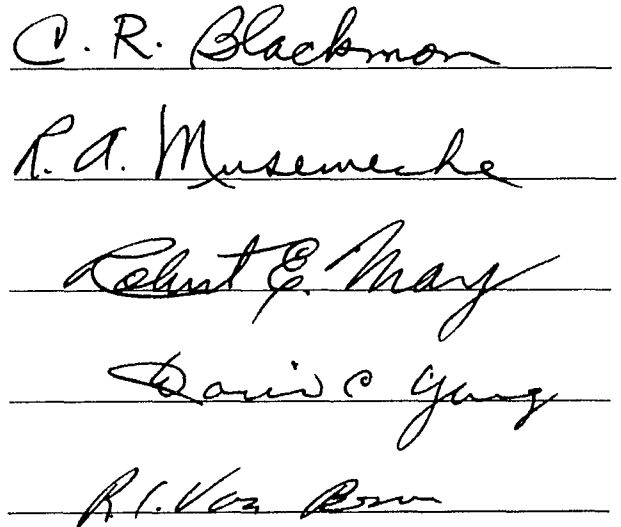 C. R. Blackmon
R. A. Museweche
Robert E. May
David C Young
R. I. Van